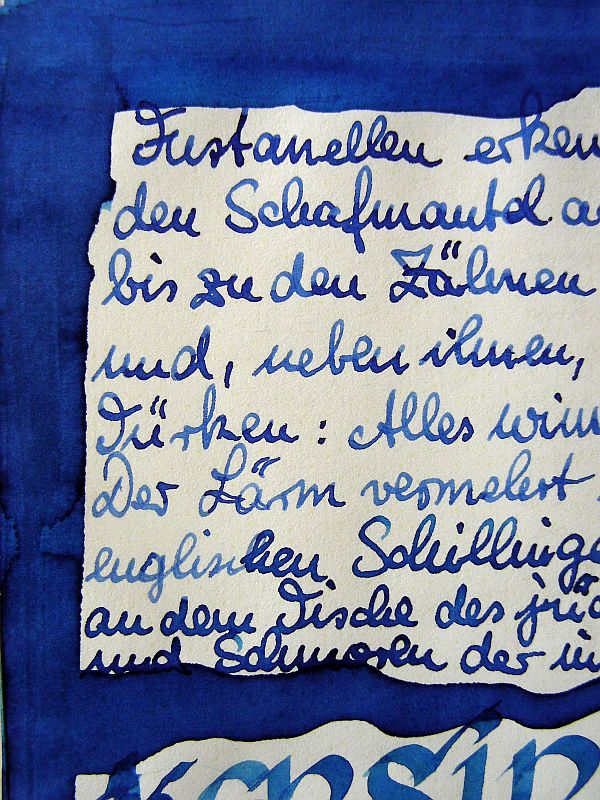 Fustanellen erken
den Schafmantel a
bis zu den Zähnen
und, neben ihnen,
Türken: Alles wim
Der Lärm vermehrt
englischen Schillinge
an dem Tische des jüd
und Schmoren der in